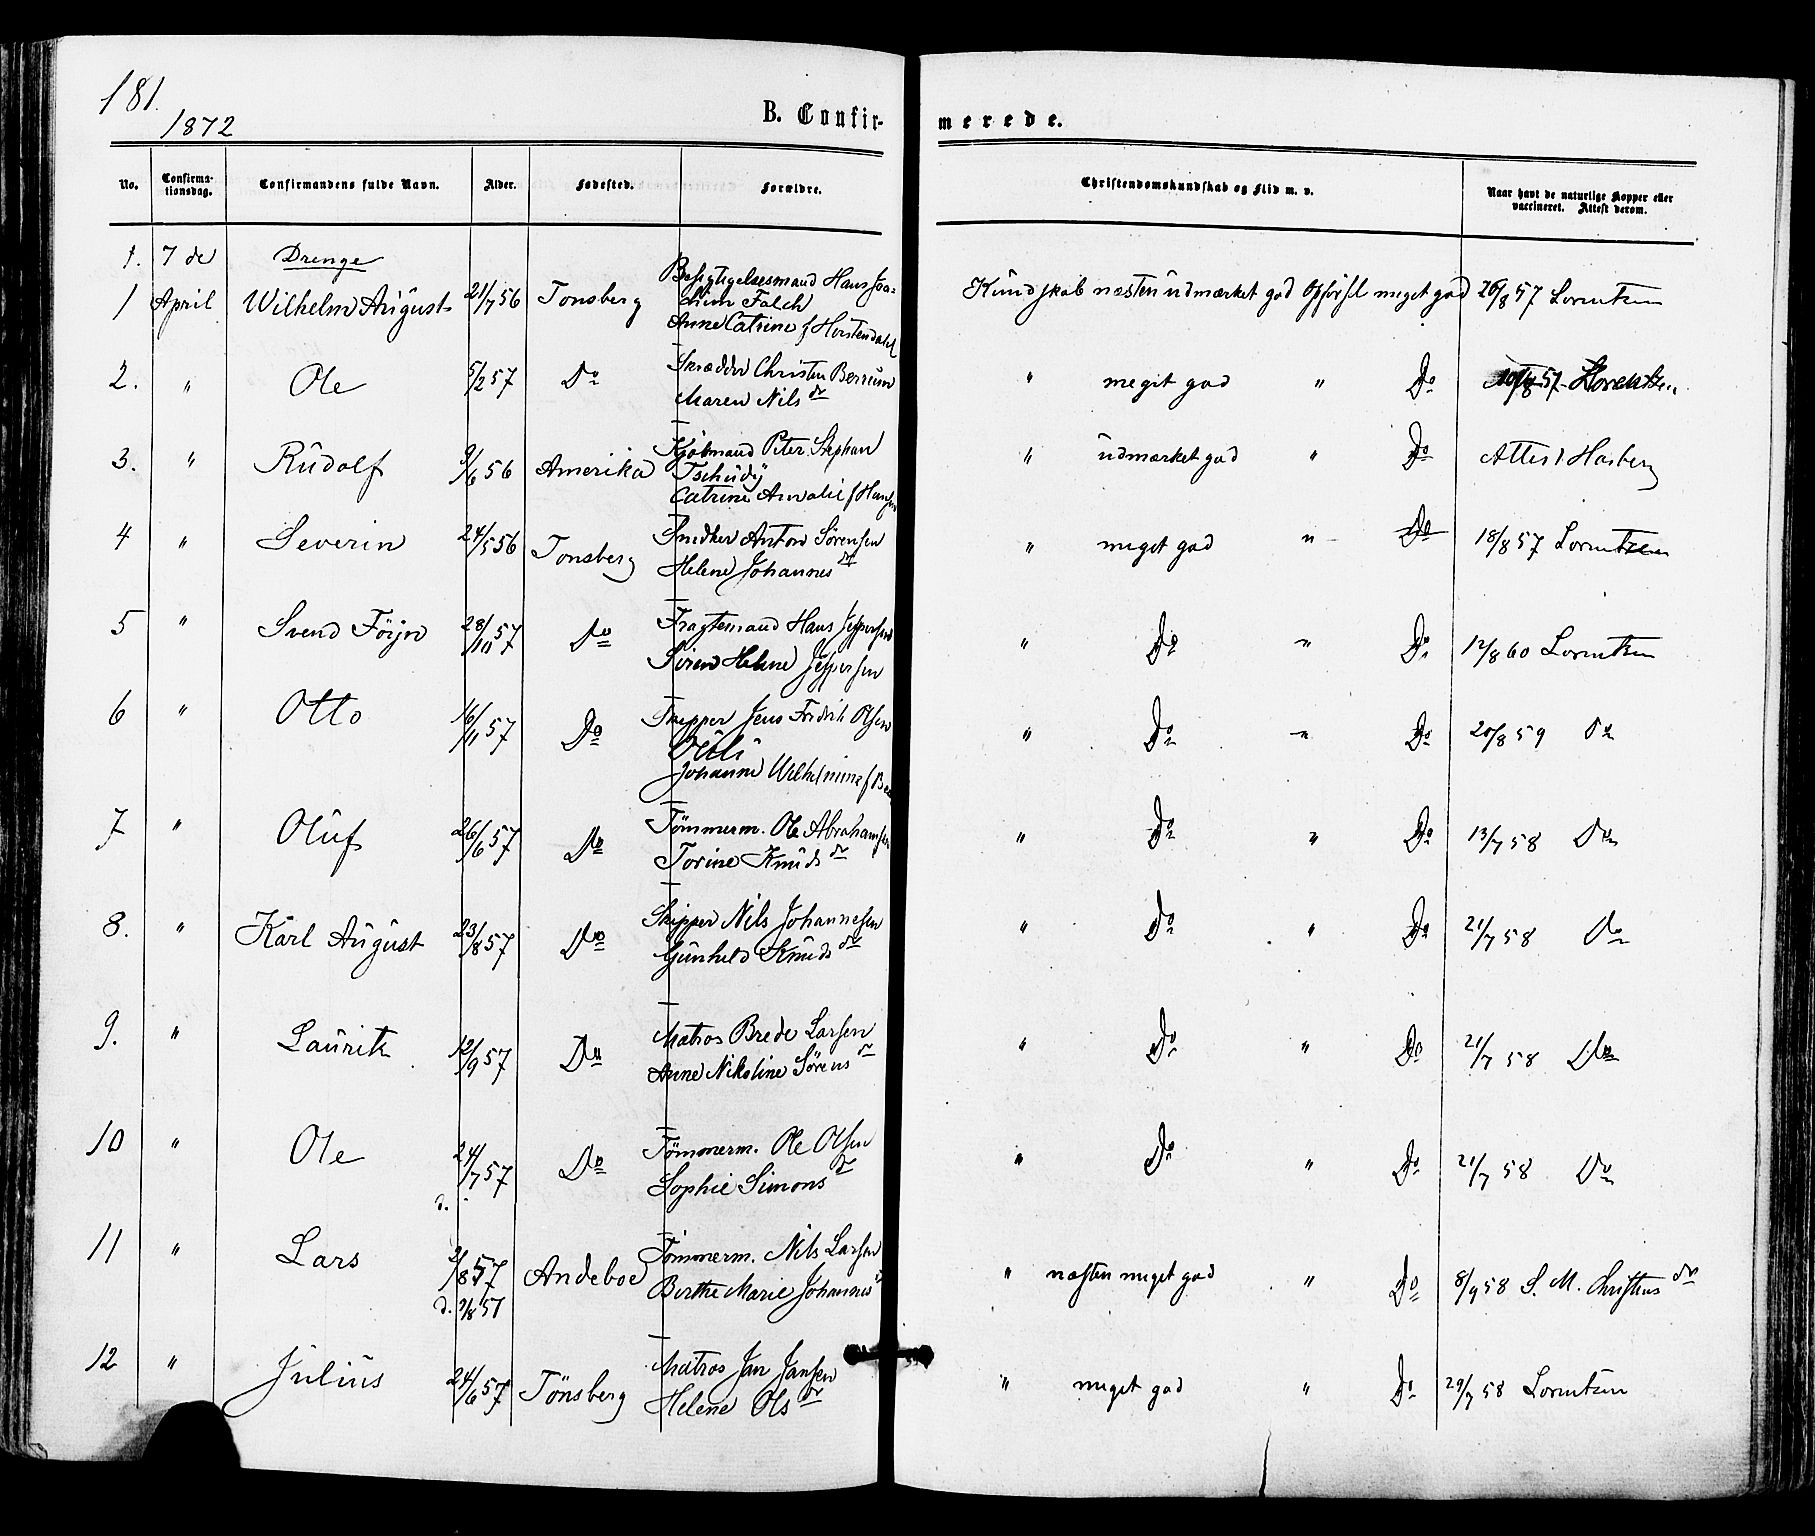 181.
1872
B. Confirmerede.
No. Confirmationsdag. Confirmandens fulde Navn. Alder. Fødested. Forældre. Christendomskundskab og Flid m. v. Naar havt de naturlige Kopper eller vaccineret. Attest derom.
1. 7 de Drenge
1 April Wilhelm August 21/7 56 Tonsberg Besigtigelsesmand Hans Joa-
chim Falch
Anne Catrine f
Kundskab næsten udmærket god Opførsel meget god 26/8 57 Lorentzen
2. " Ole 5/2 57 Do Skrædder Christen Berrum
Maren Nils dr
" meget god " Do 57 Lorentzen
3. " Rudolf 9/6 56 Amerika Kjøbmand Peter Stephan
Tschudy
Catrine Amalie f
" udmærket god " Do Attest Hasberg
4 " Severin 24/5 56 Tonsberg Snedker Anton Sørensen
Helene Johannes dr
" meget god " Do 18/8 57 Lorentzen
5 " Svend Föijn 28/10 57 Do Fragtemand Hans Jeppersen
Siren Helene Jeppersen
" Do " Do 12/8 60 Lorentzen
6 " Otto 16/11 57 Do Skipper Jens Fredrik Olsen
Johanne Wilhelmine f
" Do " Do 20/8 59 Do
7 " Oluf 26/6 57 Do Tömmerm. Ole Abrahamsen
Torine Knuds dr
" Do " Do 13/7 58 Do
8. " Karl August 23/8 57 Do Skipper Nils Johannesen
Gunhild Knuds dr
" Do " Do 21/7 58 Do
9. " Lauritz 12/9 57 Do Matros Brede Larsen
Anne Nikoline Sörens dr
" Do " Do 21/7 58 Do
10 " Ole 24/7 57 Do Tömmerm. Ole Olsen
Sophie Simons dr
d.
" Do " Do 21/7 58 Do
11 " Lars 2/8 57 Andeboe Tömmerm. Nils Larsen
d. 9/8 57 Berthe Marie Johannes dr
" næsten meget god " Do 8/9 58 S. M. Christens dr
12 " Julius 24/6 57 Tönsberg Matros Jan Jansen
Helene Ols dr
" meget god " Do 29/7 58 Lorentzen